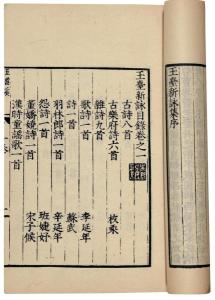 玉臺新詠集序
玉臺新詠目錄卷之一
古詩八首
古樂府詩六首
雜詩九首 枚乘
歌詩一首 李延年
詩一首 蘇武
羽林郎詩一首 辛延年
怨詩一首 班婕妤
董嬌嬈詩一首 宋子侯
漢時童謠歌一首